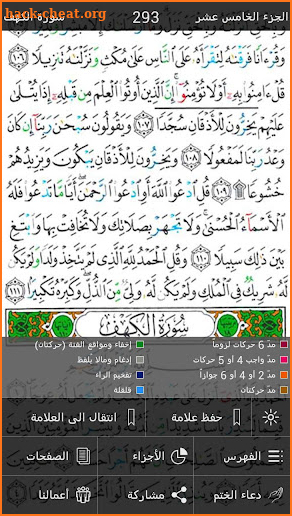 الجزء الخامس عشر 293 سورة الكهف
hack-cheat.org
وَقُرْءَانًا فَرَقْنَٰهُ لِتَقْرَأَهُۥ عَلَى ٱلنَّاسِ عَلَىٰ مُكْثٍ وَنَزَّلْنَٰهُ تَنزِيلًا ١٠٦
قُلْ ءَامِنُوا۟ بِهِۦٓ أَوْ لَا تُؤْمِنُوٓا۟ إِنَّ ٱلَّذِينَ أُوتُوا۟ ٱلْعِلْمَ مِن قَبْلِهِۦٓ إِذَا يُتْلَىٰ
عَلَيْهِمْ يَخِرُّونَ لِلْأَذْقَانِ سُجَّدًا ١٠٧ وَيَقُولُونَ سُبْحَٰنَ رَبِّنَآ إِن كَانَ
وَعْدُ رَبِّنَا لَمَفْعُولًا ١٠٨ وَيَخِرُّونَ لِلْأَذْقَانِ يَبْكُونَ وَيَزِيدُهُمْ
خُشُوعًا ١٠٩ قُلِ ٱدْعُوا۟ ٱللَّهَ أَوِ ٱدْعُوا۟ ٱلرَّحْمَٰنَ أَيًّا مَّا تَدْعُوا۟ فَلَهُ
ٱلْأَسْمَآءُ ٱلْحُسْنَىٰ وَلَا تَجْهَرْ بِصَلَاتِكَ وَلَا تُخَافِتْ بِهَا وَٱبْتَغِ
بَيْنَ ذَٰلِكَ سَبِيلًا ١١٠ وَقُلِ ٱلْحَمْدُ لِلَّهِ ٱلَّذِى لَمْ يَتَّخِذْ وَلَدًا وَلَمْ يَكُن
لَّهُۥ شَرِيكٌ فِى ٱلْمُلْكِ وَلَمْ يَكُن لَّهُۥ وَلِىٌّ مِّنَ ٱلذُّلِّ وَكَبِّرْهُ تَكْبِيرًۢا ١١١
سُورَةُ الكَهْفِ
مدّ 6 حركات لزوماً إخفاء ومواقع الغنة (حركتان)
مدّ واجب 4 او 5 حركات إدغام ومالا يلفظ
مدّ 2 أو 4 أو 6 جوازاً تفخيم الراء
مدّ حركتان قلقلة
حفظ علامة انتقال الى العلامة
الفهرس الأجزاء الصفحات
دعاء الختم مشاركة أعمالنا
hack-cheat.org